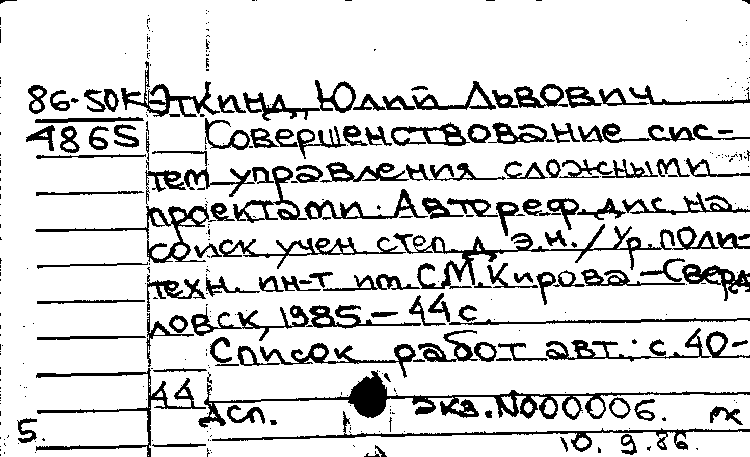 86-50К Эткинд, Юлий Львович.
4865 Совершенствование сис-
тем управления сложными
проектами: Автореф. дис. на
соиск. учен степ. д. э.н. / Ур. поли-
техн. ин-т им. С.М. Кирова. - Сверд
ловск, 1985. - 44 с.
Список работ авт.: с. 40-
44
Дсп. экз. N000006. пк
5. 10. 9.86